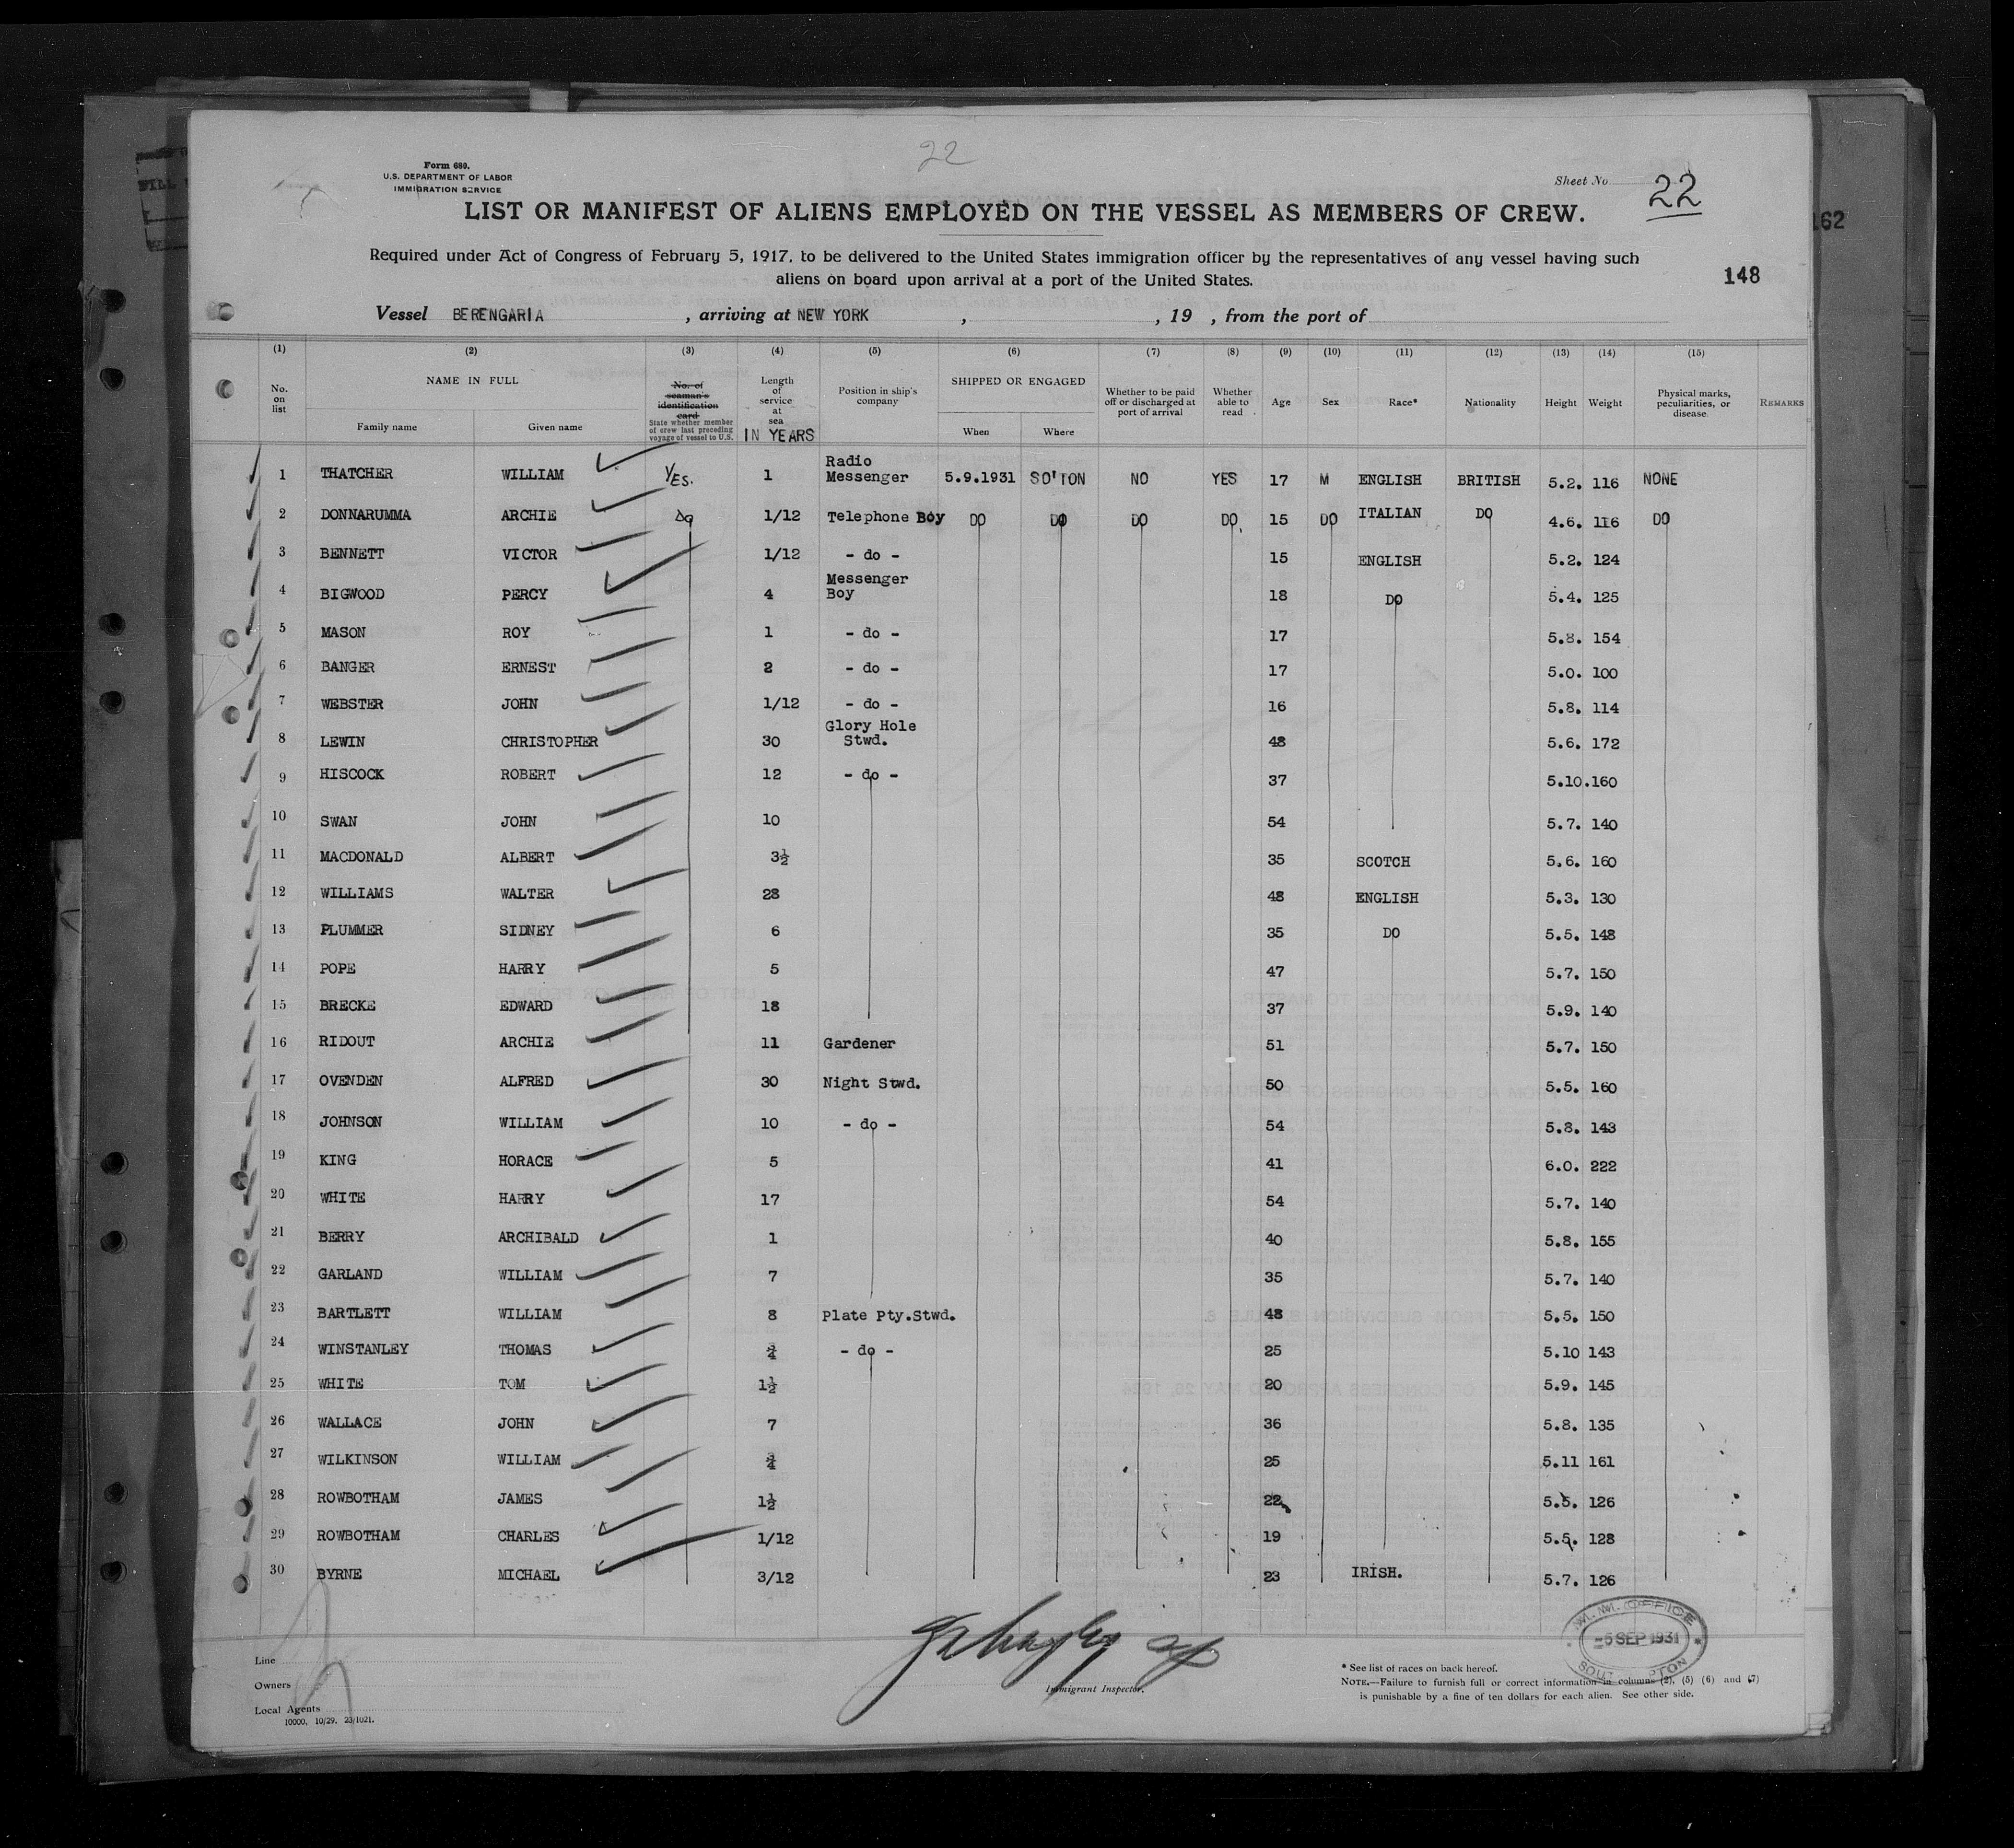 22
Form 680.
U.S. DEPARTMENT OF LABOR
IMMIGRATION SERVICE
Sheet No 22
LIST OR MANIFEST OF ALIENS EMPLOYED ON THE VESSEL AS MEMBERS OF CREW.
162
Required under Act of Congress of February 5, 1917, to be delivered to the United States immigration officer by the representatives of any vessel having such
aliens on board upon arrival at a port of the United States.
148
Vessel BERENGARIA , arriving at NEW YORK , , 19 , from the port of
(1) (2) (3) (4) (5) (6) (7) (8) (9) (10) (11) (12) (13) (14) (15)
No. on list NAME IN FULL Family name Given name No. of seaman's identification card State whether member of crew last preceding voyage of vessel to U.S. Length of service at sea IN YEARS Position in ship's company SHIPPED OR ENGAGED When Where Whether to be paid off or discharged at port of arrival Whether able to read Age Sex Race* Nationality Height Weight Physical marks, peculiarities, or disease REMARKS
1 THATCHER WILLIAM YES. 1 Radio Messenger 5.9.1931 SO'TON NO YES 17 M ENGLISH BRITISH 5.2. 116 NONE
2 DONNARUMMA ARCHIE do 1/12 Telephone Boy DO DO DO DO 15 DO ITALIAN DO 4.6. 116 DO
3 BENNETT VICTOR 1/12 - do - 15 ENGLISH 5.2. 124
4 BIGWOOD PERCY 4 Messenger Boy 18 DO 5.4. 125
5 MASON ROY 1 - do - 17 5.8. 154
6 BANGER ERNEST 2 - do - 17 5.0. 100
7 WEBSTER JOHN 1/12 - do - 16 5.8. 114
8 LEWIN CHRISTOPHER 30 Glory Hole Stwd. 48 5.6. 172
9 HISCOCK ROBERT 12 - do - 37 5.10. 160
10 SWAN JOHN 10 54 5.7. 140
11 MACDONALD ALBERT 3½ 35 SCOTCH 5.6. 160
12 WILLIAMS WALTER 28 48 ENGLISH 5.3. 130
13 PLUMMER SIDNEY 6 35 DO 5.5. 148
14 POPE HARRY 5 47 5.7. 150
15 BRECKE EDWARD 18 37 5.9. 140
16 RIDOUT ARCHIE 11 Gardener 51 5.7. 150
17 OVENDEN ALFRED 30 Night Stwd. 50 5.5. 160
18 JOHNSON WILLIAM 10 - do - 54 5.8. 143
19 KING HORACE 5 41 6.0. 222
20 WHITE HARRY 17 54 5.7. 140
21 BERRY ARCHIBALD 1 40 5.8. 155
22 GARLAND WILLIAM 7 35 5.7. 140
23 BARTLETT WILLIAM 8 Plate Pty.Stwd. 48 5.5. 150
24 WINSTANLEY THOMAS ¾ - do - 25 5.10 143
25 WHITE TOM 1½ 20 5.9. 145
26 WALLACE JOHN 7 36 5.8. 135
27 WILKINSON WILLIAM ¾ 25 5.11 161
28 ROWBOTHAM JAMES 1½ 22 5.5. 126
29 ROWBOTHAM CHARLES 1/12 19 5.5. 128
30 BYRNE MICHAEL 3/12 23 IRISH. 5.7. 126
M.M. OFFICE
-5 SEP 1931
Line
Owners
Local Agents
10000, 10/29. 23/1021.
Immigrant Inspector.
* See list of races on back hereof.
NOTE.—Failure to furnish full or correct information in columns (2), (5) (6) and (7)
is punishable by a fine of ten dollars for each alien. See other side.